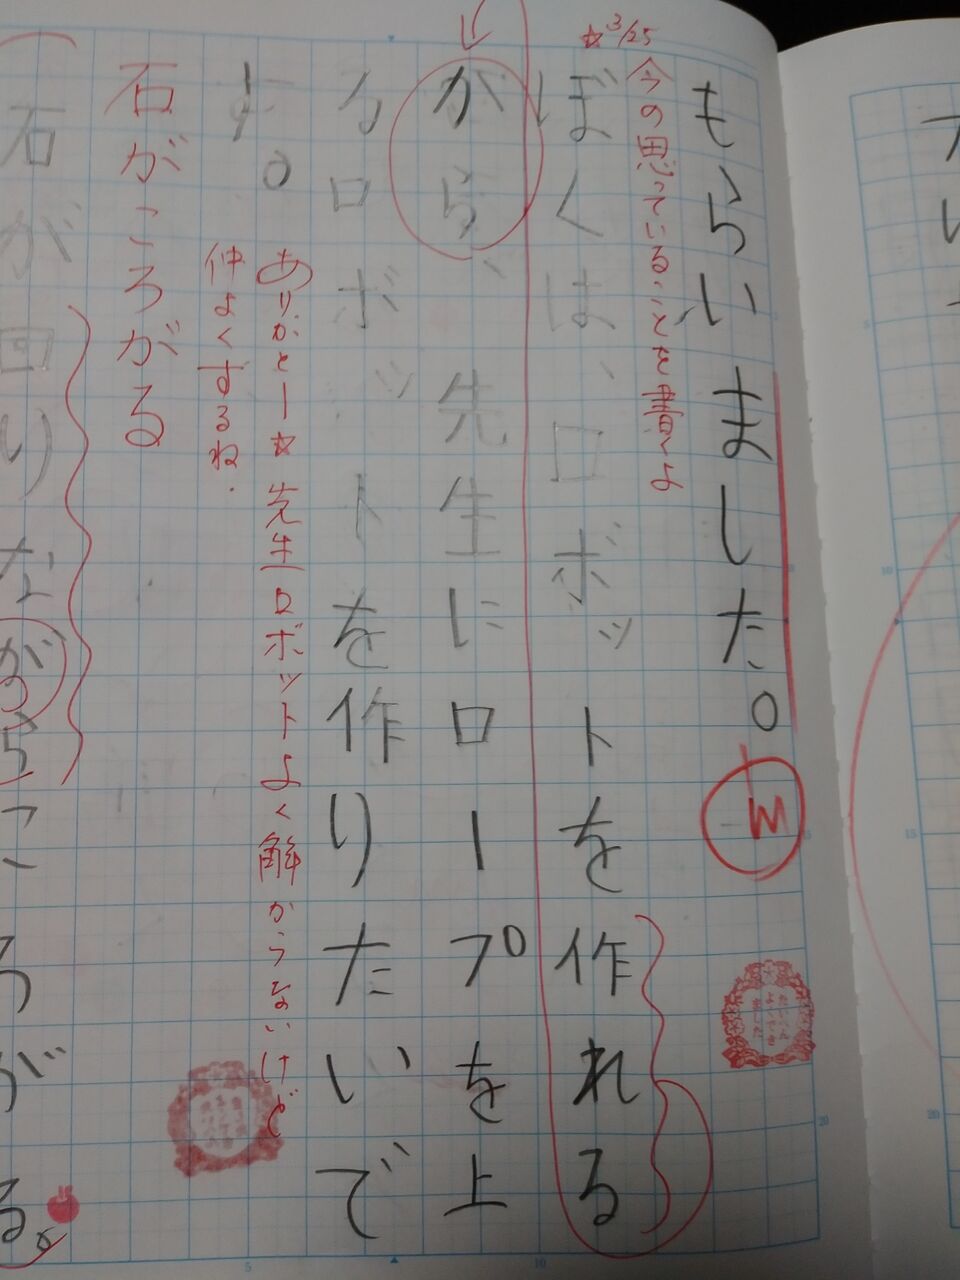 もらいました。
☆3/25
今の思っていることを書くよ
ぼくは、ロボットを作れる
がら、先生にロープを上
るロボットを作りたいで
す。
ありがとー☆先生ロボットよく解からないけど
仲よくするね.
石がころがる
石が回りながらころがる。